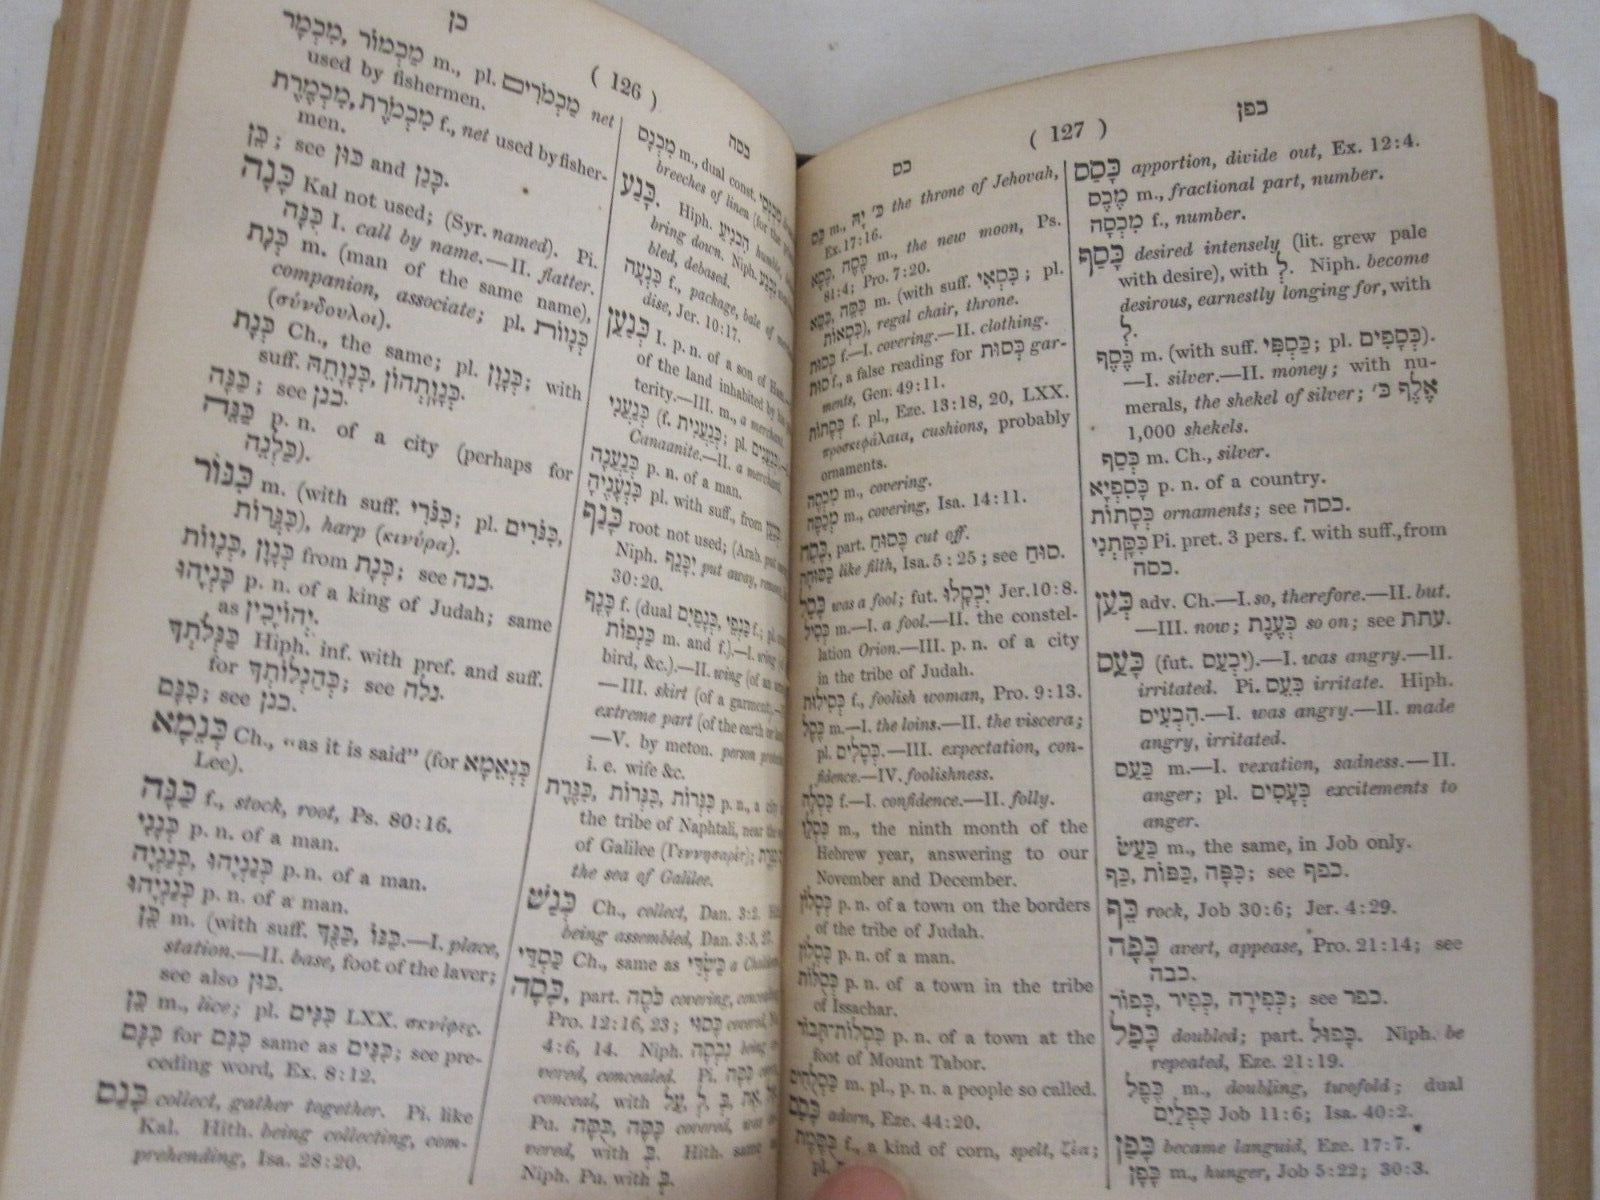 כן
( 126 )
כסה
מִכְמָר, מַכְמוֹר m., pl. מַכְמֹרִים net
used by fishermen.
מִכְמֶרֶת, מִכְמֹרֶת f., net used by fisher-
men.
כֵּן ; see כּוּן and כָּנַן.
כָּנָה Kal not used; (Syr. named). Pi.
כִּנָּה I. call by name.—II. flatter.
כְּנָת m. (man of the same name),
companion, associate; pl. כְּנָווֹת
(σύνδουλοι).
כְּנָת Ch., the same; pl. כְּנָוָן; with
suff. כְּנָוָתֵהּ, כְּנָוָתְהוֹן.
כַּנָּה ; see כנן.
כַּנֵּה p. n. of a city (perhaps for
כַּלְנֵה).
כִּנּוֹר m. (with suff. כִּנֹּרִי; pl. כִּנֹּרִים,
כִּנֹּרוֹת), harp (κινύρα).
כְּנָווֹת, כְּנָוָן from כְּנָת; see כנה.
כָּנְיָהוּ p. n. of a king of Judah; same
as יְהוֹיָכִין.
כַּנְּלֹתְךָ Hiph. inf. with pref. and suff.
for כְּהַנְלוֹתְךָ; see נלה.
כִּנָּם; see כנן.
כְּנֵמָא Ch., “as it is said” (for כְּנֵאמָא
Lee).
כַּנָּה f., stock, root, Ps. 80:16.
כְּנָנִי p. n. of a man.
כְּנַנְיָה, כְּנַנְיָהוּ p. n. of a man.
כָּנַנְיָהוּ p. n. of a man.
כֵּן m. (with suff. כַּנּוֹ, כַּנֶּךָ.—I. place,
station.—II. base, foot of the laver;
see also כּוּן.
כֵּן m., lice; pl. כִּנִּים LXX. σκνίφες.
כִּנָּם for כִּנָּם same as כִּנִּים; see pre-
ceding word, Ex. 8:12.
כָּנַס collect, gather together. Pi. like
Kal. Hith. being collecting, com-
prehending, Isa. 28:20.
מִכְנָס m., dual const. מִכְנְסֵי
breeches of linen (for the
כָּנַע. Hiph. הִכְנִיעַ humble,
bring down. Niph. נִכְנַע
bled, debased.
כִּנְעָה f., package, bale of
dise, Jer. 10:17.
כְּנַעַן I. p. n. of a son of Ham.
of the land inhabited by his
terity.—III. m., a merchant.
כְּנַעֲנִי (f. כְּנַעֲנִית; pl. כְּנַעֲנִים)
Canaanite.—II. a merchant.
כְּנַעֲנָה p. n. of a man.
כִּנְעָנֶיהָ pl. with suff., from
כָּנַף root not used; (Arab. put
Niph. יִכָּנֵף put away,
30:20.
כָּנָף f. (dual כְּנָפַיִם, כַּנְפֵי f.; pl.
כַּנְפוֹת m. and f.).—I. wing
bird, &c.).—II. wing (of an
—III. skirt (of a garment).
extreme part (of the earth
—V. by meton. person
i. e. wife &c.
כִּנֶּרֶת, כִּנְּרוֹת, כִּנֲרוֹת p. n., a city
the tribe of Naphtali, near the
of Galilee (Γεννησαρέτ);
the sea of Galilee.
כְּנַשׁ Ch., collect, Dan. 3:2.
being assembled, Dan. 3:3, 27.
כַּסְדָּי Ch., same as כַּשְׂדָּי a
כָּסָה, part. כֹּסֶה covering,
Pro. 12:16, 23; כָּסוּי covered,
4:6, 14. Niph. נִכְסָה being
vered, concealed. Pi. כִּסָּה
conceal, with עַל, לְ, בְּ, אֶת
Pu. כֻּסָּה, כָּסָּה covered, was
vered, with בְּ. Hith. same
Niph. Pu. with בְּ.
כס
( 127 )
כפן
כֵּס m., כֵּס יָהּ the throne of Jehovah,
Ex. 17:16.
כֶּסֶא, כֵּסֶה m., the new moon, Ps.
81:4; Pro. 7:20.
כִּסֵּא, כִּסֵּה m. (with suff. כִּסְאִי; pl.
כִּסְאוֹת), regal chair, throne.
כְּסוּת f.—I. covering.—II. clothing.
סוּת f., a false reading for כְּסוּת gar-
ments, Gen. 49:11.
כְּסָתוֹת f. pl., Eze. 13:18, 20, LXX.
προσκεφάλαια, cushions, probably
ornaments.
מִכְסֶה m., covering.
מְכַסֶּה m., covering, Isa. 14:11.
כָּסַח, part. כָּסוּחַ cut off.
כַּסּוּחָה like filth, Isa. 5:25; see סוּחַ.
כָּסַל was a fool; fut. יִכְסָלוּ Jer. 10:8.
כְּסִיל m.—I. a fool.—II. the constel-
lation Orion.—III. p. n. of a city
in the tribe of Judah.
כְּסִילוּת f., foolish woman, Pro. 9:13.
כֶּסֶל m.—I. the loins.—II. the viscera;
pl. כְּסָלִים.—III. expectation, con-
fidence.—IV. foolishness.
כִּסְלָה f.—I. confidence.—II. folly.
כִּסְלֵו m., the ninth month of the
Hebrew year, answering to our
November and December.
כְּסָלוֹן p. n. of a town on the borders
of the tribe of Judah.
כִּסְלוֹן p. n. of a man.
כְּסֻלּוֹת p. n. of a town in the tribe
of Issachar.
כִּסְלוֹת־תָּבוֹר p. n. of a town at the
foot of Mount Tabor.
כַּסְלֻחִים m. pl., p. n. a people so called.
כָּסַם adorn, Eze. 44:20.
כֻּסֶּמֶת f., a kind of corn, spelt, ζέα;
pl.
כָּסַס apportion, divide out, Ex. 12:4.
מֶכֶס m., fractional part, number.
מִכְסָה f., number.
כָּסַף desired intensely (lit. grew pale
with desire), with לְ. Niph. become
desirous, earnestly longing for, with
לְ.
כֶּסֶף m. (with suff. כַּסְפִּי; pl. כְּסָפִים).
—I. silver.—II. money; with nu-
merals, the shekel of silver; אֶלֶף כ׳
1,000 shekels.
כְּסַף m. Ch., silver.
כָּסִפְיָא p. n. of a country.
כְּסָתוֹת ornaments; see כסה.
כִּסָּתְנִי Pi. pret. 3 pers. f. with suff., from
כסה.
כְּעַן adv. Ch.—I. so, therefore.—II. but.
—III. now; כְּעֶנֶת so on; see עתת.
כָּעַס (fut. יִכְעַס).—I. was angry.—II.
irritated. Pi. כִּעֵס irritate. Hiph.
הִכְעִים.—I. was angry.—II. made
angry, irritated.
כַּעַס m.—I. vexation, sadness.—II.
anger; pl. כְּעָסִים excitements to
anger.
כַּעַשׂ m., the same, in Job only.
כַּף, כַּפּוֹת, כִּפָּה; see כפף.
כֵּף rock, Job 30:6; Jer. 4:29.
כָּפָה avert, appease, Pro. 21:14; see
כבה.
כְּפוֹר, כְּפִיר, כְּפִירָה; see כפר.
כָּפַל doubled; part. כָּפוּל. Niph. be
repeated, Eze. 21:19.
כֶּפֶל m., doubling, twofold; dual
כִּפְלַיִם Job 11:6; Isa. 40:2.
כָּפַן became languid, Eze. 17:7.
כָּפָן m., hunger, Job 5:22; 30:3.